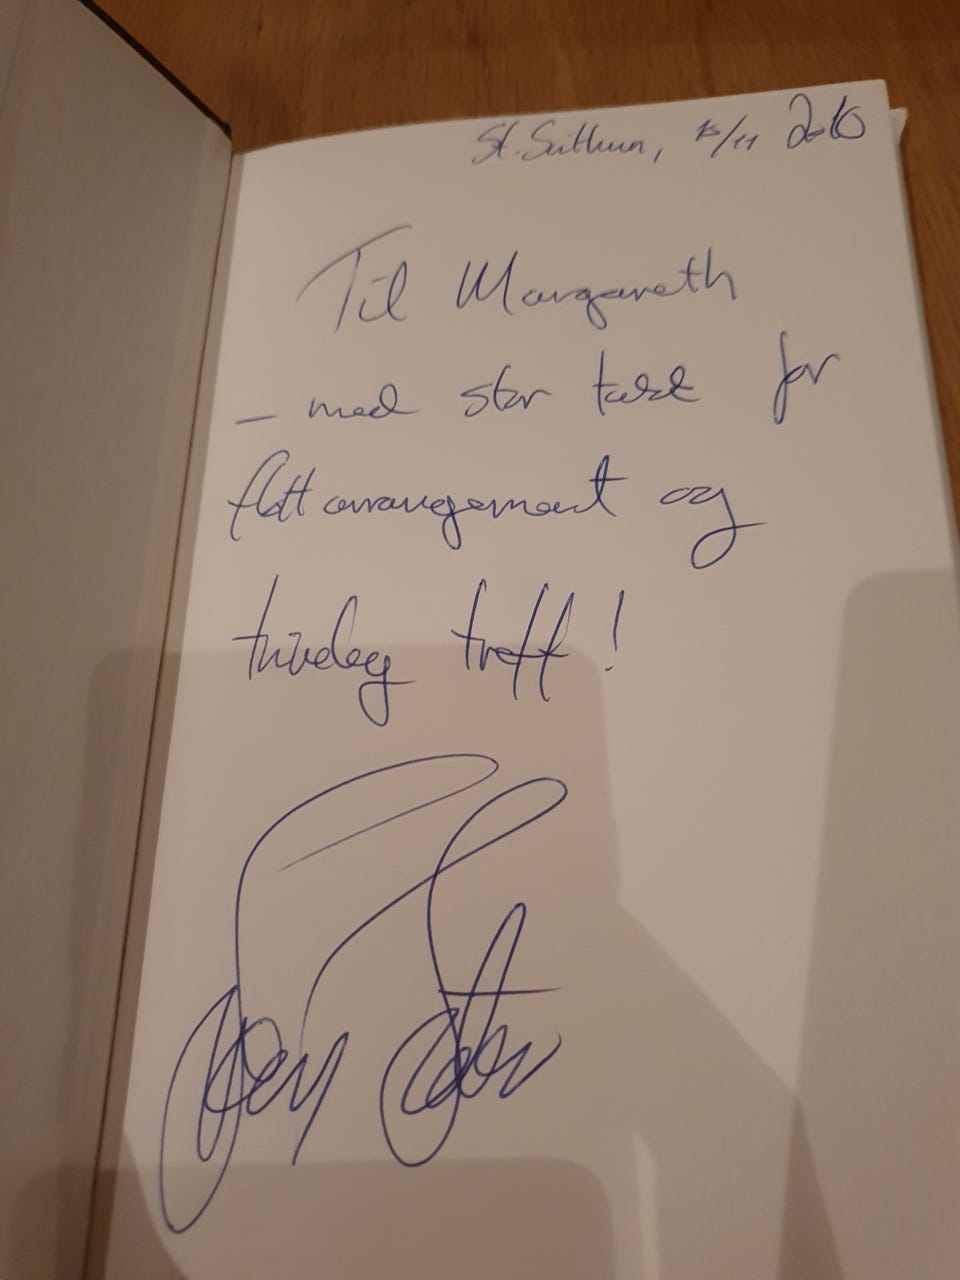 St. Svithun, 15/11 2010
Til Margareth
– med stor takk for
flott arrangement og
triveleg treff!